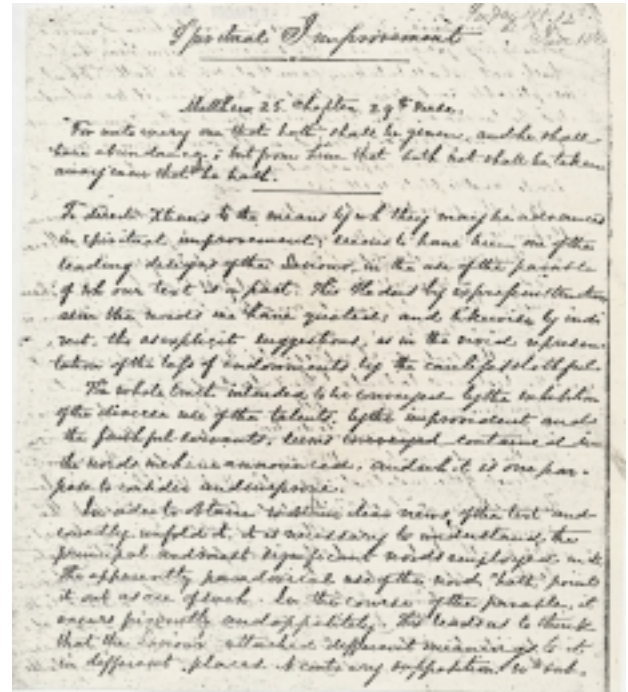 Spiritual Improvement
Matthew 25 Chapter 29th verse.
"For unto every one that hath shall be given, and he shall
have abundance; but from him that hath not shall be taken
away even that he hath.
To direct to the means by wh they may be advanced
in spiritual improvement, seems to have been one of the
leading designs of the Saviour, in the use of the parable
of wh our text is a part. This He does by express instruction
in the words we have quoted; and likewise by indi
rect, tho as explicit suggestions, as in the vivid represen-
tation of the loss of endowments by the careless slothful.
The whole truth intended to be conveyed by the exhibition
of the diverse use of the talents, by the improvident and
the faithful servants, seems conveyed contained in
the words we have announced, and wh it is our pur-
pose to consider and improve.
In order to obtain clear views of the text and
unfold it, it is necessary to understand the
principal and most significant words employed in it
the apparently paradoxical use of the word "hath" points
it out as one of such. In the course of the parable, it
occurs frequently and oppositely. This leads us to think
that the Saviour attached different meanings to it
in different places. A contrary supposition, wd sub-